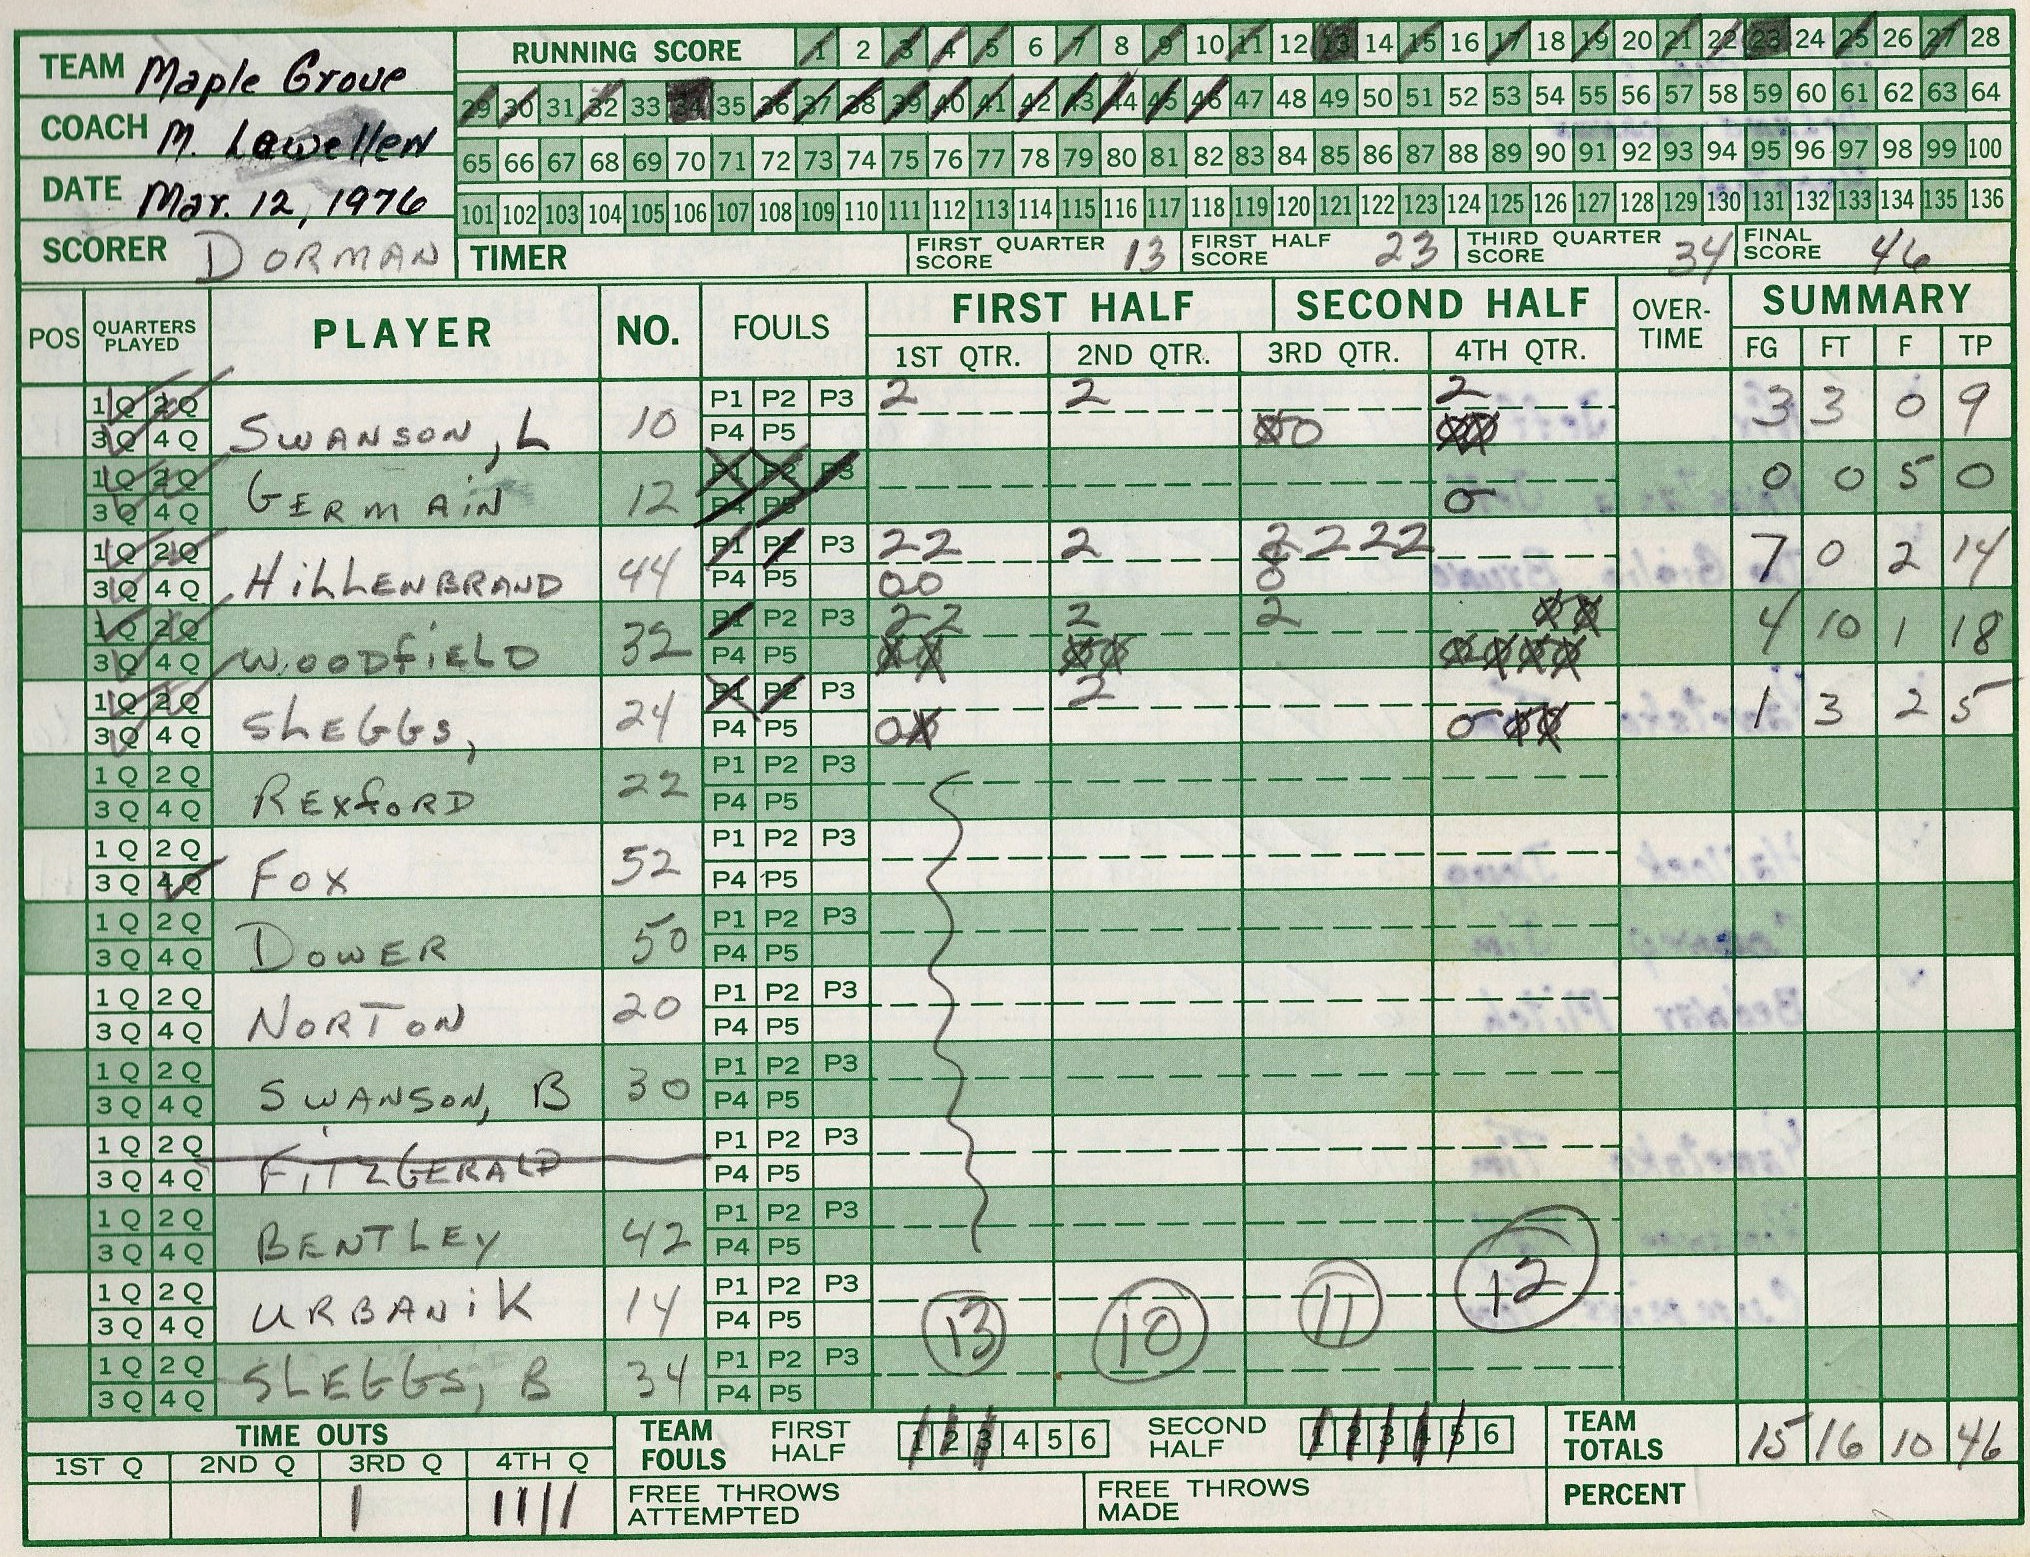 TEAM Maple Grove
COACH M. Lewellen
DATE Mar. 12, 1976
SCORER DORMAN
RUNNING SCORE 1 2 3 4 5 6 7 8 9 10 11 12 13 14 15 16 17 18 19 20 21 22 23 24 25 26 27 28
29 30 31 32 33 34 35 36 37 38 39 40 41 42 43 44 45 46 47 48 49 50 51 52 53 54 55 56 57 58 59 60 61 62 63 64
65 66 67 68 69 70 71 72 73 74 75 76 77 78 79 80 81 82 83 84 85 86 87 88 89 90 91 92 93 94 95 96 97 98 99 100
101 102 103 104 105 106 107 108 109 110 111 112 113 114 115 116 117 118 119 120 121 122 123 124 125 126 127 128 129 130 131 132 133 134 135 136
TIMER FIRST QUARTER SCORE 13 FIRST HALF SCORE 23 THIRD QUARTER SCORE 34 FINAL SCORE 46
POS QUARTERS PLAYED PLAYER NO. FOULS FIRST HALF SECOND HALF OVER-TIME SUMMARY
1ST QTR. 2ND QTR. 3RD QTR. 4TH QTR. FG FT F TP
1Q 2Q P1 P2 P3 2 2 2
3Q 4Q SWANSON, L 10 P4 P5 0 0 0 0 3 3 0 9
1Q 2Q P1 P2 P3
3Q 4Q GERMAIN 12 P4 P5 0 0 0 5 0
1Q 2Q P1 P2 P3 2 2 2 2 2 2 2
3Q 4Q HILLENBRAND 44 P4 P5 0 0 0 7 0 2 14
1Q 2Q P1 P2 P3 2 2 2 2 0 0
3Q 4Q WOODFIELD 32 P4 P5 0 0 0 0 0 0 0 0 4 10 1 18
1Q 2Q P1 P2 P3 2
3Q 4Q SLEGGS, 24 P4 P5 0 0 0 0 0 1 3 2 5
1Q 2Q P1 P2 P3
3Q 4Q REXFORD 22 P4 P5
1Q 2Q P1 P2 P3
3Q 4Q FOX 52 P4 P5
1Q 2Q P1 P2 P3
3Q 4Q DOWER 50 P4 P5
1Q 2Q P1 P2 P3
3Q 4Q NORTON 20 P4 P5
1Q 2Q P1 P2 P3
3Q 4Q SWANSON, B 30 P4 P5
1Q 2Q P1 P2 P3
3Q 4Q FITZGERALD P4 P5
1Q 2Q P1 P2 P3
3Q 4Q BENTLEY 42 P4 P5
1Q 2Q P1 P2 P3
3Q 4Q URBANIK 14 P4 P5 13 10 11 12
1Q 2Q P1 P2 P3
3Q 4Q SLEGGS, B 34 P4 P5
TIME OUTS TEAM FOULS FIRST HALF 1 2 3 4 5 6 SECOND HALF 1 2 3 4 5 6 TEAM TOTALS 15 16 10 46
1ST Q 2ND Q 3RD Q 4TH Q
FREE THROWS ATTEMPTED FREE THROWS MADE PERCENT